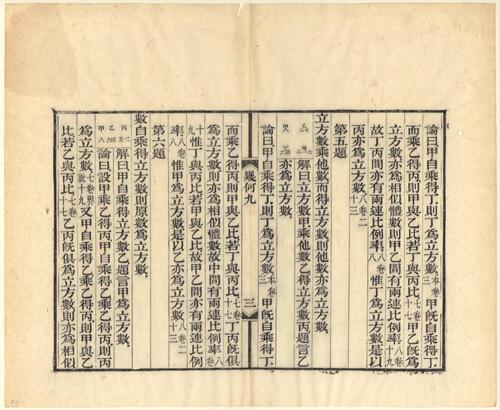 論曰甲自乘得丁則丁爲立方數本卷三甲旣自乘得丁
而乘乙得丙則甲與乙比若丁與丙比七卷十七甲乙旣爲
立方數亦爲相似體數則甲乙間有兩連比例率八卷十九
故丁丙間亦有兩連比例率八卷八惟丁爲立方數是以
丙亦爲立方數八卷二十三
第五題
立方數乘他數而得立方數則他數亦爲立方數
解曰立方數甲乘他數乙得立方數丙題言乙
亦爲立方數
論曰甲自乘得丁則丁爲立方數本卷三甲旣自乘得丁
幾何九
三
而乘乙得丙則甲與乙比若丁與丙比七卷十七丁丙旣俱
爲立方數則亦爲相似體數故中間有兩連比例率八卷
十九惟丁與丙比若甲與乙比故甲乙間亦有兩連比例
率八卷八惟甲爲立方數是以乙亦爲立方數八卷二十三
第六題
數自乘得立方數則原數爲立方數
解曰甲自乘得立方數乙題言甲爲立方數
論曰設甲乘乙得丙甲自乘得乙乘乙得丙則丙
爲立方數七卷界說十九又甲自乘得乙乘乙得丙則甲與乙
比若乙與丙比七卷十七乙丙旣俱爲立方數則亦爲相似